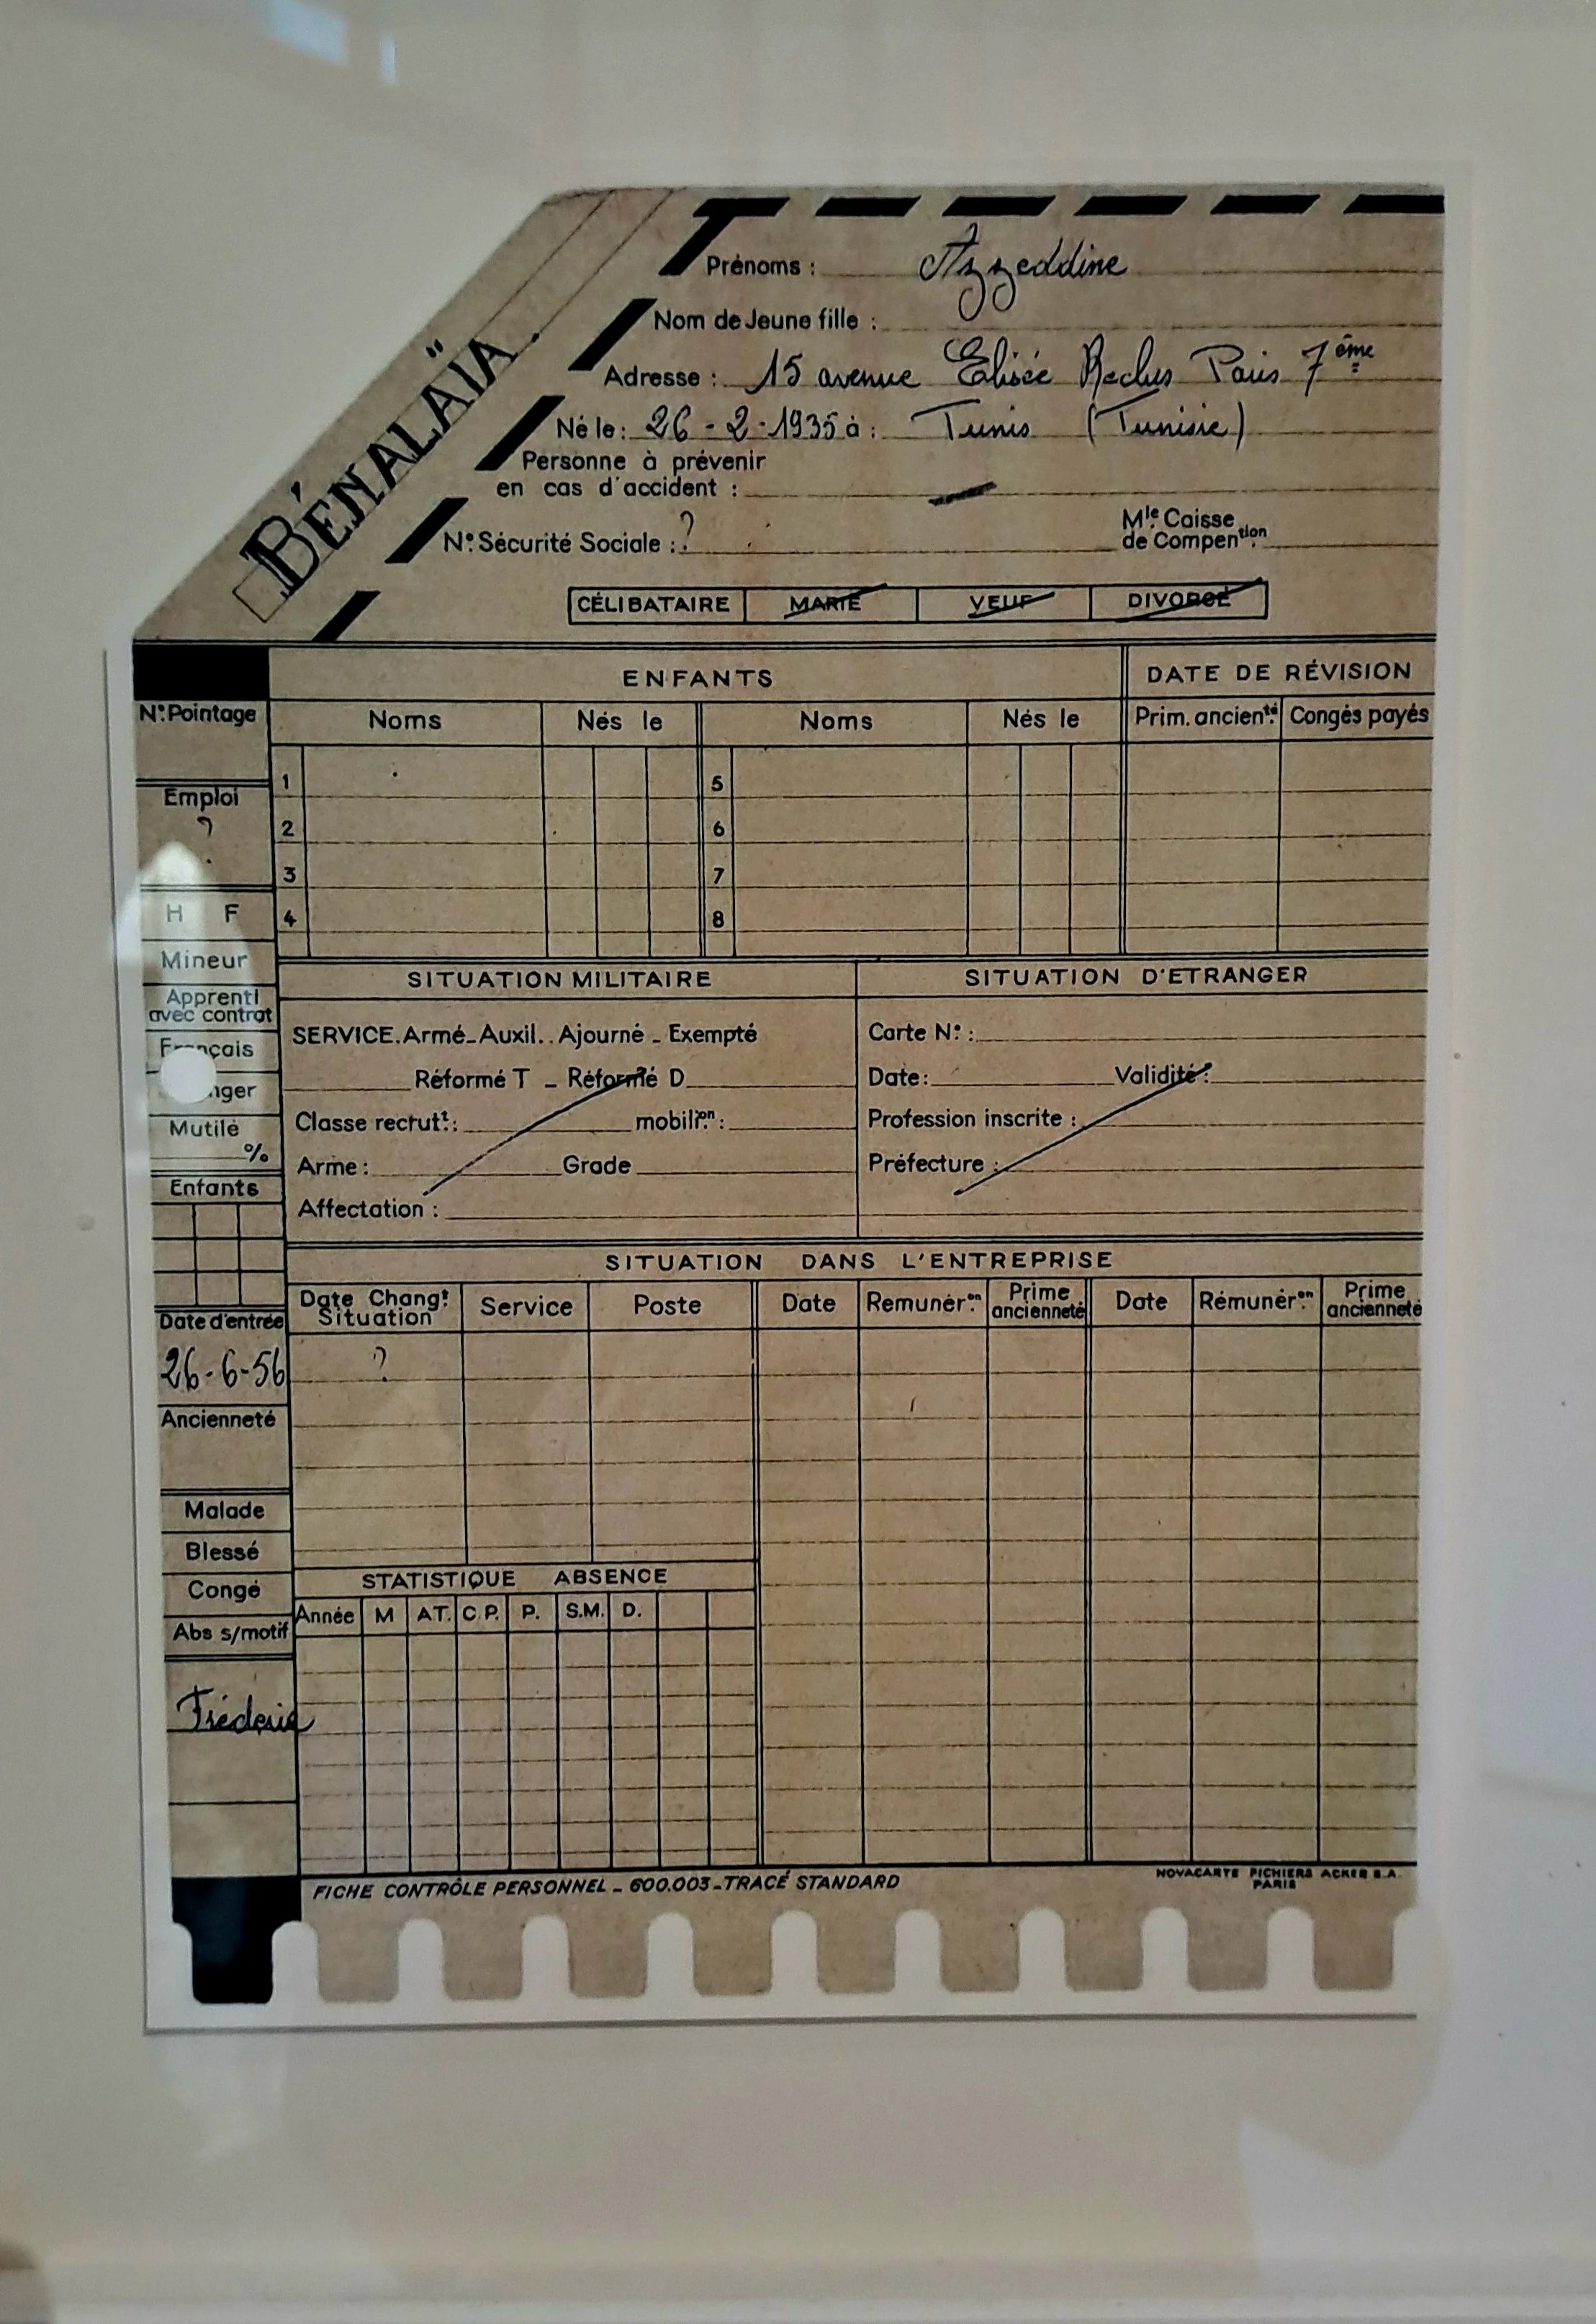 BÉNALAÏA
Prénoms : Azzeddine
Nom de Jeune fille :
Adresse : 15 avenue Elisée Reclus Paris 7ème
Né le : 26 - 2 - 1935 à : Tunis (Tunisie)
Personne à prévenir
en cas d'accident : —
N° Sécurité Sociale : ?
Mle Caisse
de Compention
CÉLIBATAIRE MARIÉ VEUF DIVORCÉ
ENFANTS
DATE DE RÉVISION
Noms Nés le Noms Nés le Prim. ancienté Congés payés
1 5
2 6
3 7
4 8
N° Pointage
Emploi
?
H F
Mineur
Apprenti
avec contrat
Mutilé
%
Enfants
Date d'entrée
26-6-56
Ancienneté
Malade
Blessé
Congé
Abs s/motif
Fréderic
SITUATION MILITAIRE
SERVICE. Armé - Auxil. . Ajourné - Exempté
Réformé T - Réformé D
Classe recrutt : mobilion :
Arme : Grade
Affectation :
SITUATION D'ETRANGER
Carte N° :
Date : Validité :
Profession inscrite :
Préfecture :
SITUATION DANS L'ENTREPRISE
Date Changt Situation Service Poste Date Remunéron Prime ancienneté Date Rémunéron Prime ancienneté
?
STATISTIQUE ABSENCE
Année M AT. C.P. P. S.M. D.
FICHE CONTRÔLE PERSONNEL - 600.003 - TRACÉ STANDARD
NOVACARTE FICHIERS ACKER S.A.
PARIS